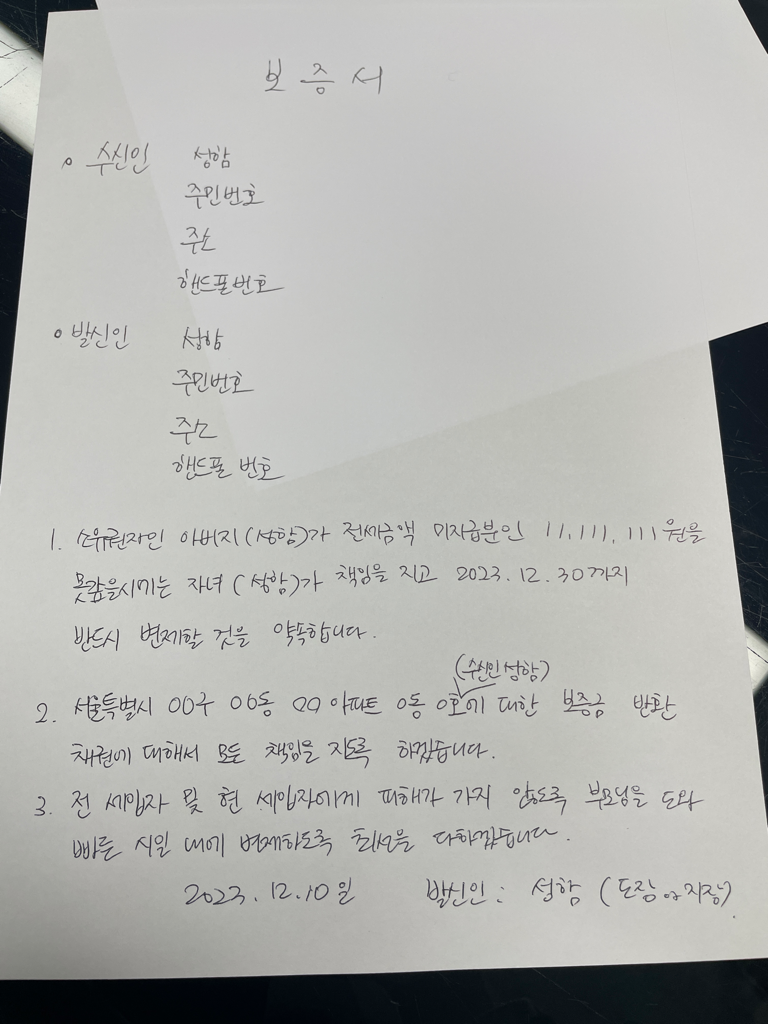 보증서
○ 수신인 성함
주민번호
주소
핸드폰번호
○ 발신인 성함
주민번호
주소
핸드폰 번호
1. 소유권자인 아버지(성함)가 전세금액 미지급분인 11,111,111원을
못갚을시에는 자녀(성함)가 책임을 지고 2023.12.30까지
반드시 변제할 것을 약속합니다.
(수신인성함)
2. 서울특별시 00구 00동 00아파트 0동 0호에 대한 보증금 반환
채권에 대해서 모든 책임을 지도록 하겠습니다.
3. 전 세입자 및 현 세입자에게 피해가 가지 않도록 부모님을 도와
빠른 시일 내에 변제하도록 최선을 다하겠습니다.
2023.12.10일 발신인: 성함 (도장 or 지장)